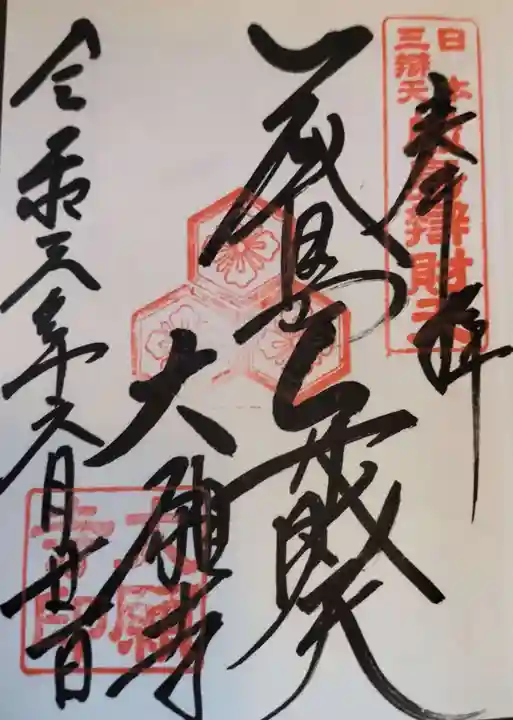 奉拝
日本
三辯天
嚴島辯財天
厳島弁財天
大願寺
大願
寺印
令和三年六月廿一日